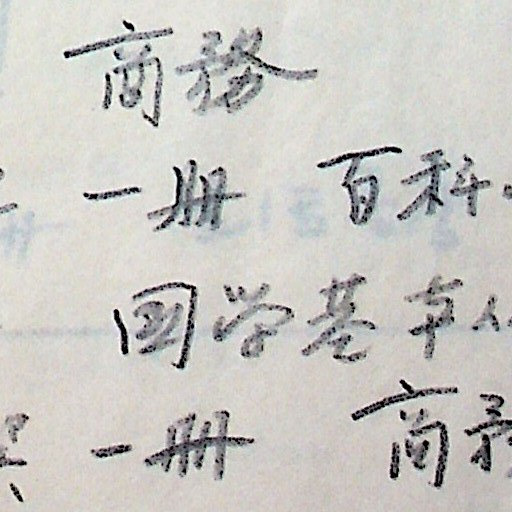 商務
一册 百科
国学基本
一册 商務